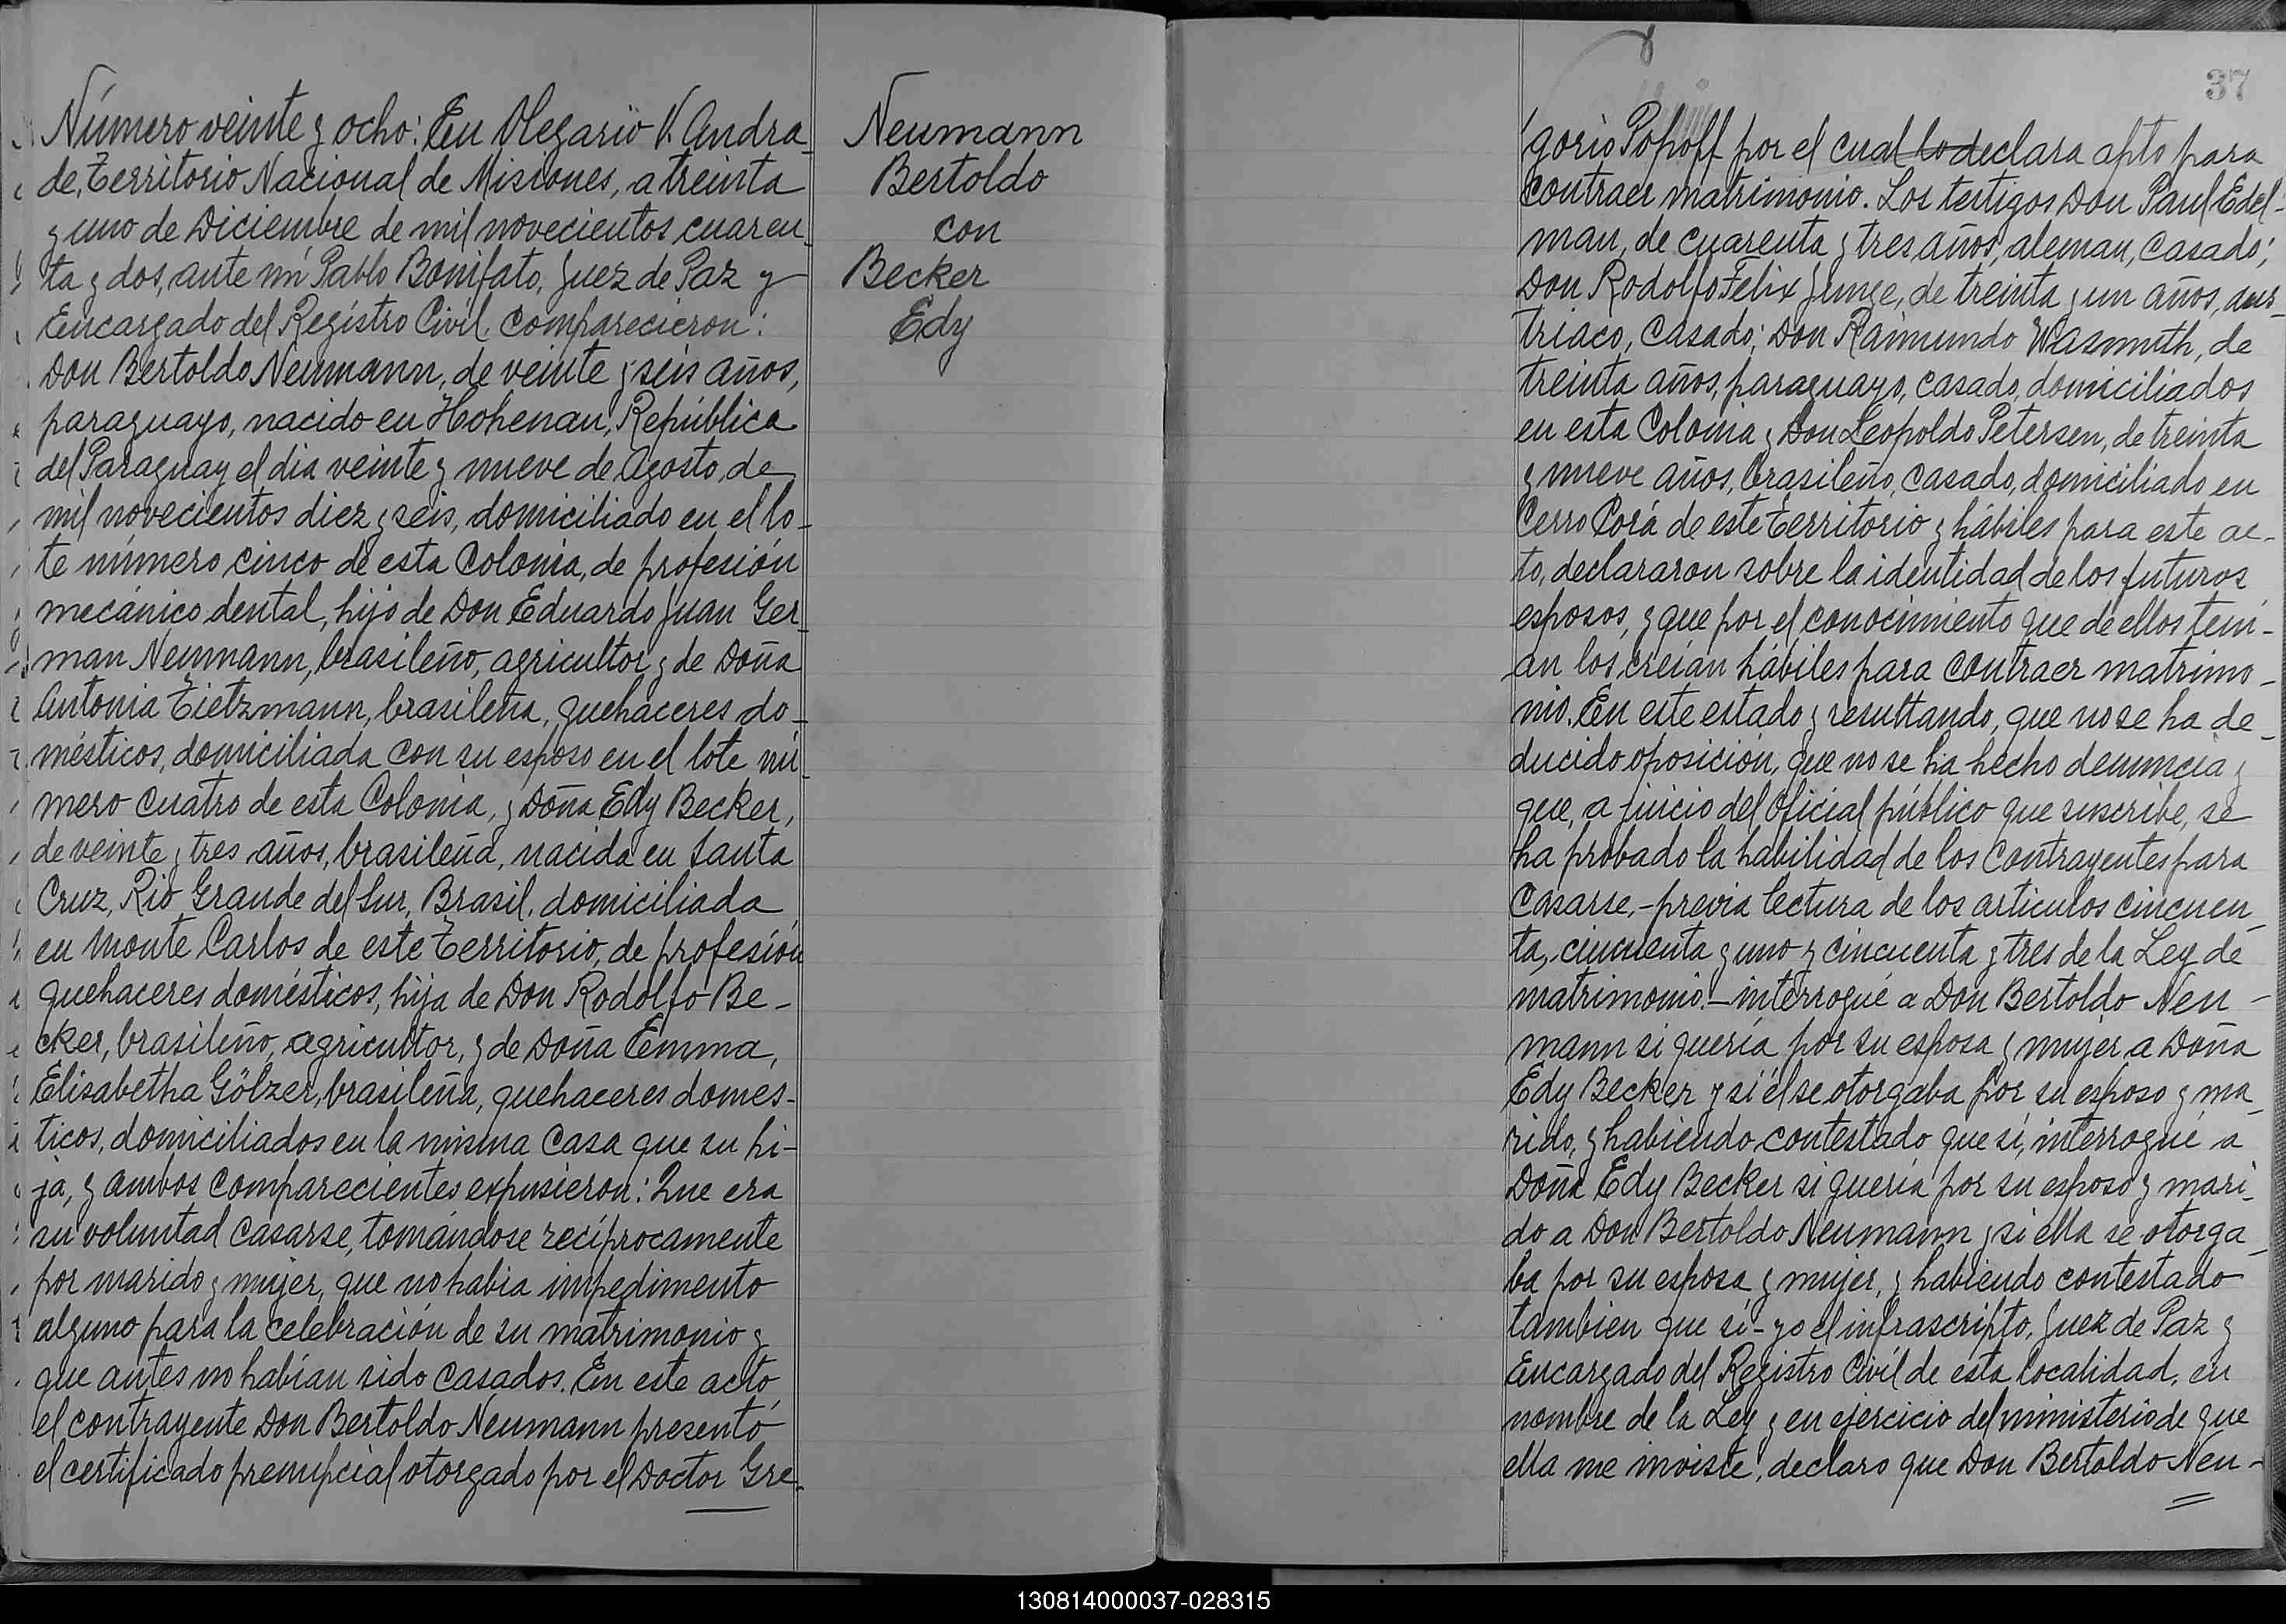 Número veinte y ocho: En Olegario V. Andra-
de, Territorio Nacional de Misiones, a treinta
y uno de Diciembre de mil novecientos cuaren-
ta y dos, ante mí Pablo Bonifato, Juez de Paz y
Encargado del Registro Civil, comparecieron:
Don Bertoldo Neumann, de veinte y seis años,
paraguayo, nacido en Hohenau, República
del Paraguay el dia veinte y nueve de Agosto de
mil novecientos diez y seis, domiciliado en el lo-
te número cinco de esta Colonia, de profesión
mecánico dental, hijo de Don Eduardo Juan Ger-
man Neumann, brasileño, agricultor y de Doña
Antonia Tietzmann, brasileña, quehaceres do-
mésticos, domiciliada con su esposo en el lote nú-
mero cuatro de esta Colonia, y Doña Edy Becker,
de veinte y tres años, brasileña, nacida en Santa
Cruz, Rio Grande del Sur, Brasil, domiciliada
en Monte Carlos de este Territorio, de profesión
quehaceres domésticos, hija de Don Rodolfo Be-
cker, brasileño, agricultor, y de Doña Emma,
Elisabetha Gölzer, brasileña, quehaceres domés-
ticos, domiciliados en la misma casa que su hi-
ja, y ambos comparecientes expusieron: Que era
su voluntad casarse, tomándose recíprocamente
por marido y mujer, que no habia impedimento
alguno para la celebración de su matrimonio y
que antes no habían sido casados. En este acto
el contrayente Don Bertoldo Neumann presentó
el certificado prenupcial otorgado por el Doctor Gre-
Neumann
Bertoldo
con
Becker
Edy
37
gorio Popoff por el cual lo declara apto para
contraer matrimonio. Los testigos Don Paul Edel-
man, de cuarenta y tres años, aleman, casado;
Don Rodolfo Felix Junge, de treinta y un años, aus-
triaco, casado; Don Raimundo Wasmuth, de
treinta años, paraguayo, casado, domiciliados
en esta Colonia y Don Leopoldo Petersen, de treinta
y nueve años, brasileño, casado, domiciliado en
Cerro Corá de este Territorio y hábiles para este ac-
to, declararon sobre la identidad de los futuros
esposos, y que por el conocimiento que de ellos tení-
an los creían hábiles para contraer matrimo-
nio. En este estado y resultando, que no se ha de-
ducido oposición, que no se ha hecho denuncia y
que, a juicio del Oficial público que suscribe, se
ha probado la habilidad de los contrayentes para
casarse,- previa lectura de los articulos cincuen-
ta, cincuenta y uno y cincuenta y tres de la Ley de
matrimonio.- interrogué a Don Bertoldo Neu-
mann si quería por su esposa y mujer a Doña
Edy Becker y si él se otorgaba por su esposo y ma-
rido, y habiendo contestado que sí, interrogué a
Doña Edy Becker si quería por su esposo y mari-
do a Don Bertoldo Neumann y si ella se otorga-
ba por su esposa y mujer, y habiendo contestado
tambien que sí- yo el infrascripto, Juez de Paz y
Encargado del Registro Civil de esta localidad, en
nombre de la Ley y en ejercicio del ministerio de que
ella me inviste, declaro que Don Bertoldo Neu-
130814000037-028315